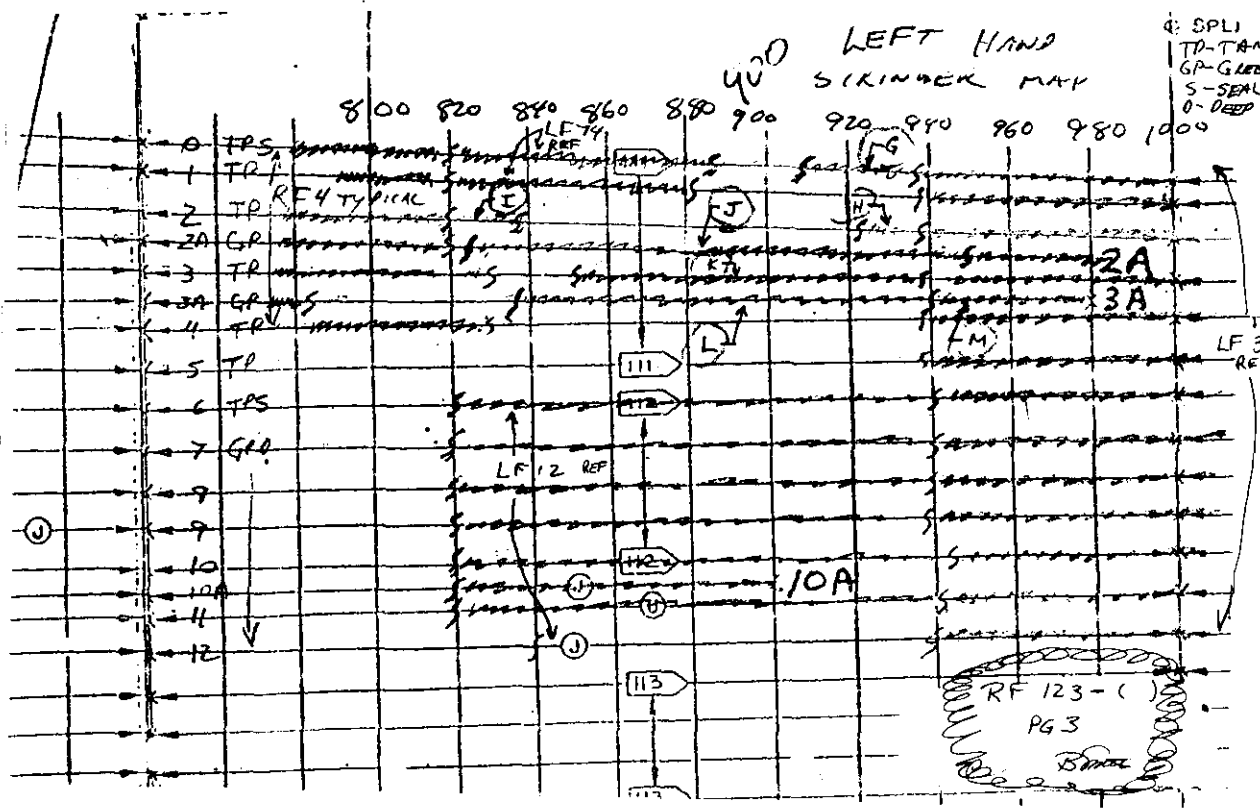 LEFT HAND
STRINGER MAP
¢ SPLI
TP-TAN
GP-GREE
S-SEAL
D-DEEP
8 00 820 840 860 880 900 920 940 960 980 1000
0 TPS
1 TP
2 TP
2A GP
3 TP
3A GP
4 TP
5 TP
6 TPS
7 GPD
8
9
10
10A
11
12
RF 4 TYPICAL
LF 74
REF
I
G
J
H
L
M
2A
3A
LF 3
RE
111
112
LF 12 REF
112
J
J
10A
J
113
113
RF 123-( )
PG 3